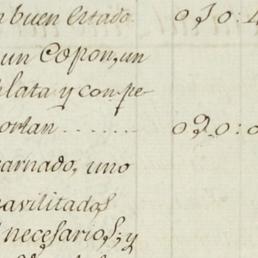 n buen estado. 0 J 0 : 4
un Copon, un
plata y con pe-
ortan ...... 0 2 0 : 0
carnado, uno
avilitados
necesarios; y